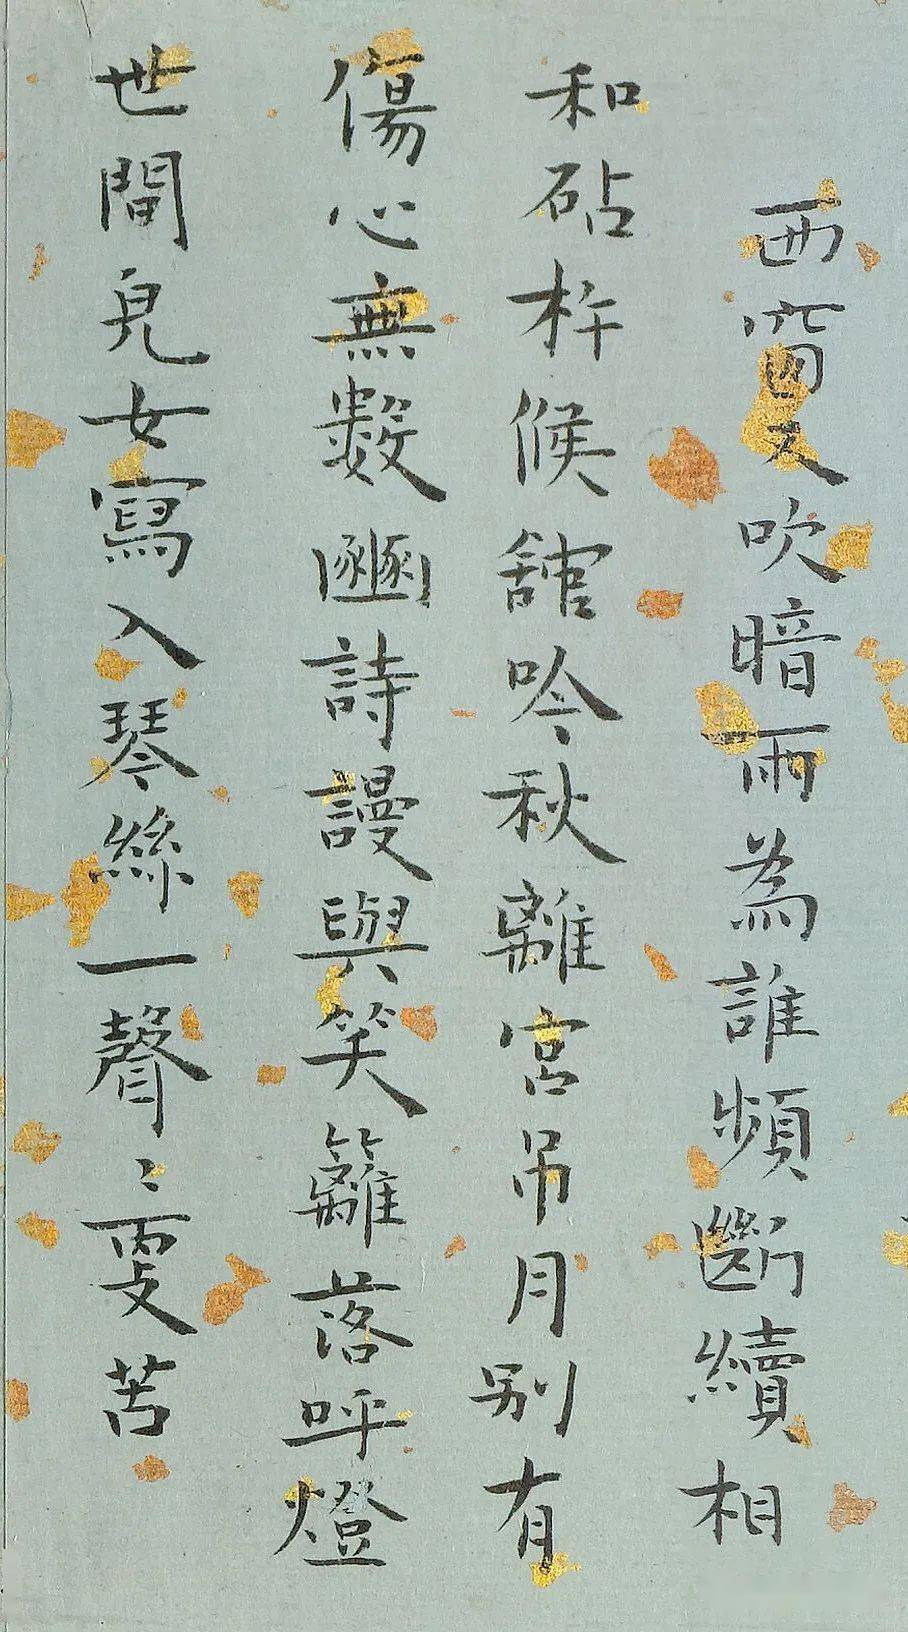 西窗又吹暗雨為誰頻斷續相
和砧杵候館吟秋離宮吊月別有
傷心無數豳詩謾與笑籬落呼燈
世間兒女寫入琴絲一聲〻更苦